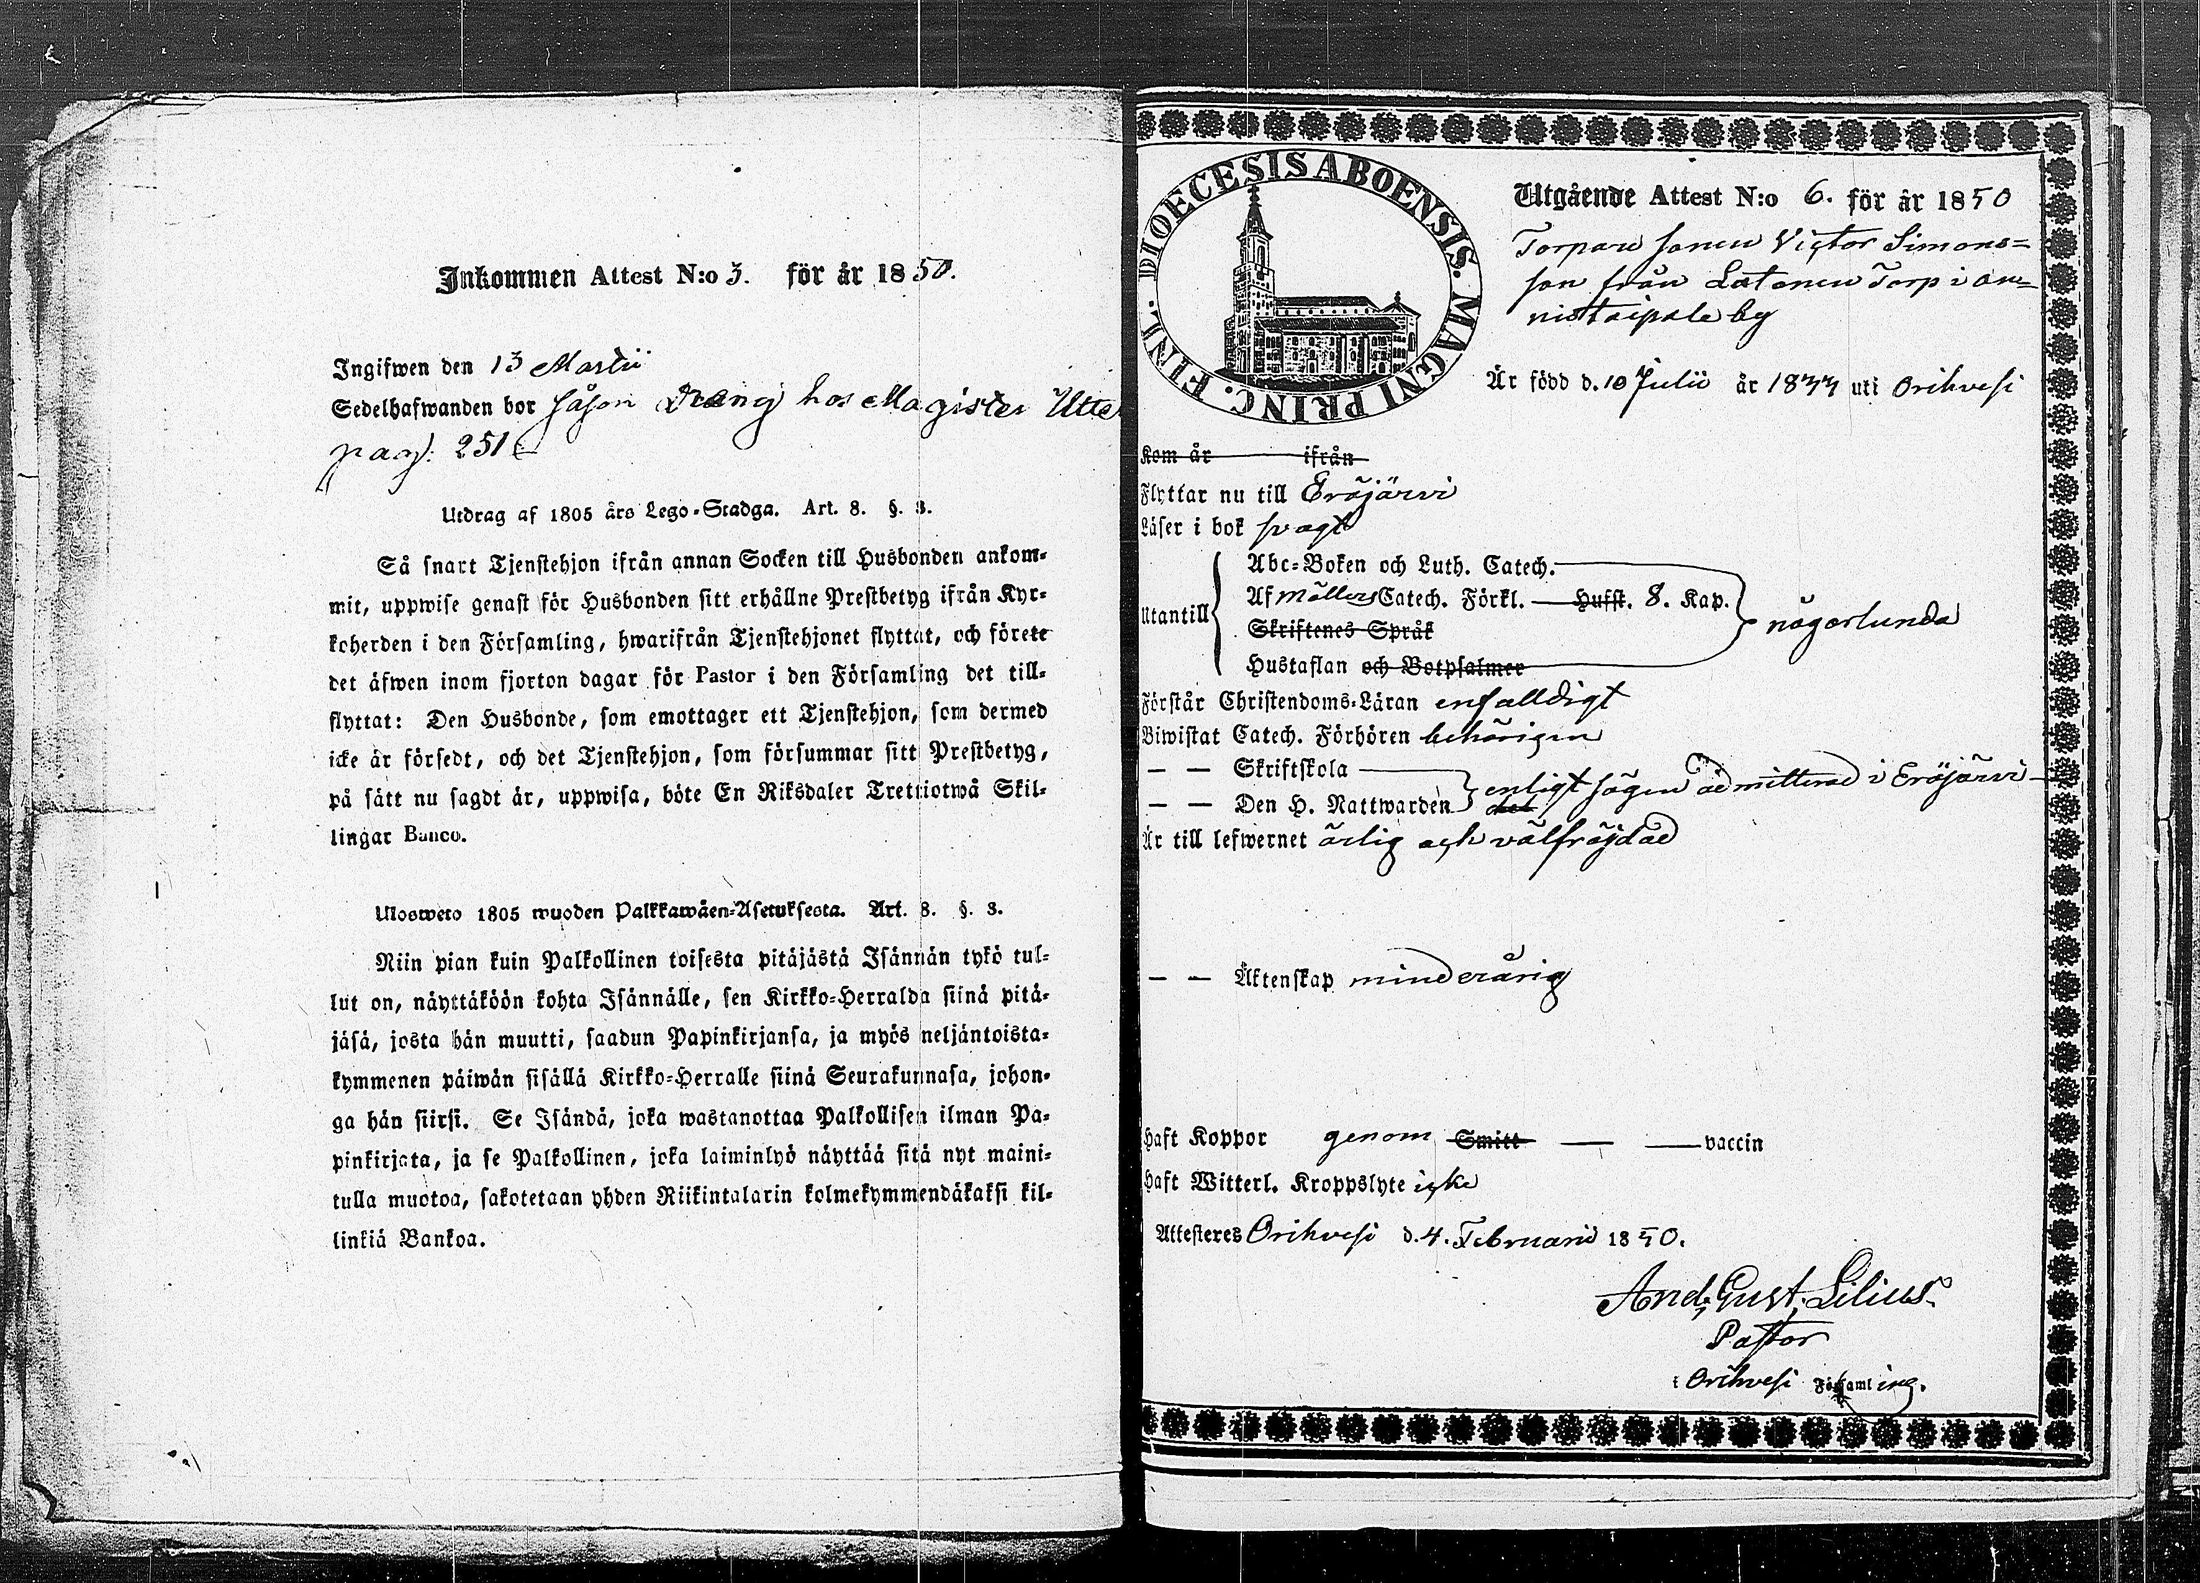 Inkommen Attest N:o 3. för år 1850.
Ingifwen den 13 Martii
Sedelhafwanden bor såsom Dräng hos Magister
pag: 251
Utdrag af 1805 års Lego-Stadga. Art. 8. §. 3.
Så snart Tjenstehjon ifrån annan Socken till Husbonden ankom-
mit, uppwise genast för Husbonden sitt erhållne Prestbetyg ifrån Kyr-
koherden i den Församling, hwarifrån Tjenstehjonet flyttat, och förete
det äfwen inom fjorton dagar för Pastor i den Församling det till-
flyttat: Den Husbonde, som emottager ett Tjenstehjon, som dermed
icke är försedt, och det Tjenstehjon, som försummar sitt Prestbetyg,
på sätt nu sagdt är, uppwisa, böte En Riksdaler Trettiotwå Skil-
lingar Banco.
Ulosweto 1805 wuoden Palkkawäen-Asetuksesta. Art. 8. §. 3.
Niin pian kuin Palkollinen toisesta pitäjästä Isännän tykö tul-
lut on, näyttäköön kohta Isännälle, sen Kirkko-Herralda siinä pitä-
jäsä, josta hän muutti, saadun Papinkirjansa, ja myös neljäntoista-
kymmenen päiwän sisällä Kirkko-Herralle siinä Seurakunnasa, johon-
ga hän siirsi. Se Isändä, joka wastanottaa Palkollisen ilman Pa-
pinkirjata, ja se Palkollinen, joka laiminlyö näyttää sitä nyt maini-
tulla muotoa, sakotetaan yhden Riikintalarin kolmekymmendäkaksi kil-
linkiä Bankoa.
DIOECESIS ABOENSIS. MAGNI PRINC. FINL.
Utgående Attest N:o 6. för år 1850
Torpare sonen Victor Simons=
son från Latonen Torp i On=
nistaipale by
Är född d. 10 Julii år 1833 uti Orihvesi
Kom år ifrån
Flyttar nu till Eräjärvi
Läser i bok svagt
Utantill
Abc-Boken och Luth. Catech.
Af Möllers Catech. Förkl. Husft. 8. Kap.
Skriftenes Språk
Hustaflan och Botpsalmer
någorlunda
Förstår Christendoms-Läran enfalldigt
Biwistat Catech. Förhören behörigen
— — Skriftskola
— — Den H. Nattwarden
enligt sägen admitterad i Eräjärvi
Är till lefwernet ärlig och välfräjdad
— — Äktenskap minderårig
Haft Koppor genom Smitt — — vaccin
Haft Witterl. Kroppslyte icke
Attesteres Orihvesi d. 4. Februarii 1850.
And. Gust. Lilius.
Pastor
i Orihvesi Församling.